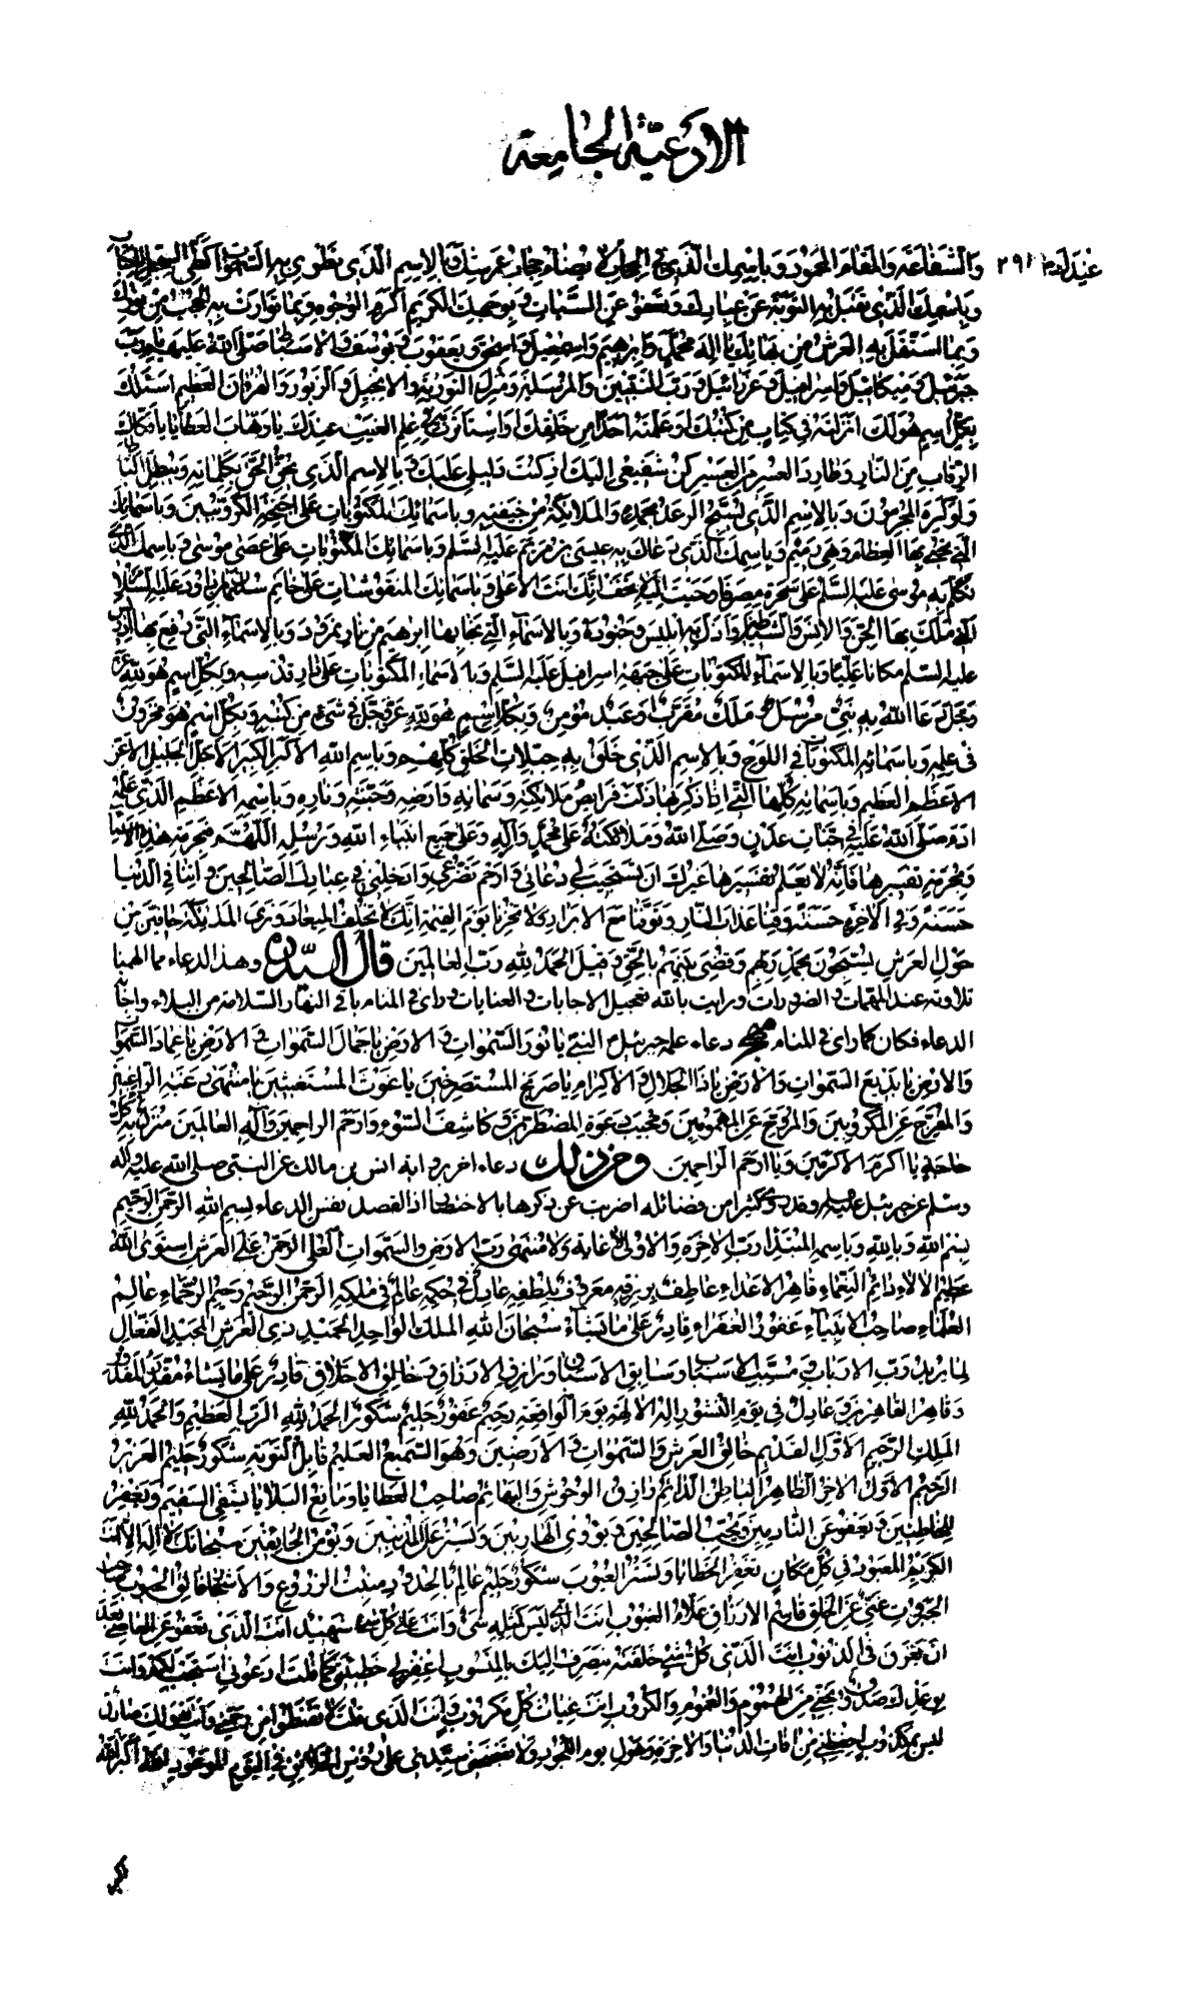 الادعية الجامعة
٢٩١
والشفاعة والمقام المحمود وباسمك الذي في الحجاب لا يضاء حجاب عرشك وبالاسم الذي تطوي به السموات كطي السجل للكتاب
وباسمك الذي تقبل به التوبة عن عبادك وتعفو عن السيئات وبوجهك الكريم اكرم الوجوه وبما توارت به الحجب من نورك
وبما استقل به العرش من بهائك يا اله محمد وابرهيم واسمعيل واسحق ويعقوب ويوسف والاسباط صلى الله عليهم يا رب
جبرئيل وميكائيل واسرافيل وعزرائيل ورب النبيين والمرسلين ومنزل التورية والانجيل والزبور والقران العظيم اسئلك
بكل اسم هو لك انزلته في كتاب من كتبك او علمته احدا من خلقك او استأثرت به في علم الغيب عندك يا وهاب العطايا يا فكاك
الرقاب من النار وطارد العسر من العسير كن شفيعي اليك اذ كنت دليلي عليك وبالاسم الذي يحق الحق بكلماته ويبطل الباطل
ولو كره المجرمون وبالاسم الذي يسبح الرعد بحمده والملائكة من خيفته وباسمائك المكتوبات على اجنحة الكروبيين وباسمائك
التي تحيي بها العظام وهي رميم وباسمك الذي دعاك به عيسى بن مريم عليه السلم وباسمائك المكتوبات على عصى موسى وباسمك الذي
تكلم به موسى عليه السلم على سحرة مصر فاوحيت اليه لا تخف انك انت الاعلى وباسمائك المنقوشات على خاتم سليمان بن داود عليه السلام
التي ملك بها الجن والانس والشياطين واذل بها ابليس وجنوده وبالاسماء التي نجا بها ابرهيم من نار نمرود وبالاسماء التي رفع بها ادريس
عليه السلم مكانا عليا وبالاسماء المكتوبات على جبهة اسرافيل عليه السلم وبالاسماء المكتوبات على دار قدسه وبكل اسم هو لله عز
وجل دعا الله به نبي مرسل او ملك مقرب او عبد مؤمن وبكل اسم هو لله عز وجل في شيء من كتبه وبكل اسم هو مخزون
في علمه وباسمائه المكتوبات في اللوح وبالاسم الذي خلق به جبلات الخلق كلهم وباسم الله الاكبر الكبير الاجل الجليل الاعز
الاعظم العظيم وباسمائه كلها التي اذا ذكرها ذلت فرائص ملائكته وسمائه وارضه وجنته وناره وباسمه الاعظم الذي علمه
ادم صلى الله عليه في جنات عدن وصلى الله وملائكته على محمد وآله وعلى جميع انبياء الله ورسله اللهم فبحرمة هذه الاسماء
وبحرمة تفسيرها فانه لا يعلم تفسيرها غيرك ان تستجيب لي دعائي وارحم تضرعي وادخلني في عبادك الصالحين واتنا في الدنيا
حسنة وفي الاخرة حسنة وقنا عذاب النار وتوفنا مع الابرار ولا تخزنا يوم القيمة انك لا تخلف الميعاد وترى الملائكة حافين من
حول العرش يسبحون بحمد ربهم وقضي بينهم بالحق وقيل الحمد لله رب العالمين قال السيد ره وهذا الدعاء مما الهمنا
تلاوته عند المهمات والضرورات ورايت بالله تعجيل الاجابات والعنايات وراى في المنام باقي النهار السلامة من البلاء واجابة
الدعاء فكان كما راى في المنام دعاء علمه جبرئيل النبي يا نور السموات والارض يا جمال السموات والارض يا عماد السموات
والارض يا بديع السموات والارض يا ذا الجلال والاكرام يا صريخ المستصرخين يا غوث المستغيثين يا منتهى رغبة الراغبين
والمفرج عن المكروبين والمروح عن المهمومين ومجيب دعوة المضطرين وكاشف السوء وارحم الراحمين واله العالمين منزول به كل
حاجة يا اكرم الاكرمين ويا ارحم الراحمين ومن ذلك دعاء اخر برواية انس بن مالك عن النبي صلى الله عليه وآله
وسلم عن جبرئيل عليه السلم وقد ذكر كثيرا من فضائله اضربت عن ذكرها بالاختصار اذ القصد نفس الدعاء بسم الله الرحمن الرحيم
بسم الله وبالله وباسمه المبتدا رب الاخرة والاولى لا غاية له ولا منتهى رب الارض والسموات العلى الرحمن على العرش استوى الله
عظيم الالاء دائم النعماء قاهر الاعداء عاطف برزقه معروف بلطفه عادل في حكمه عالم في ملكه الرحمن الرحيم رحيم الرحماء عالم
العلماء صاحب الانبياء غفور الغفراء قادر على ما يشاء سبحان الله الملك الواحد الحميد ذي العرش المجيد الفعال
لما يريد رب الارباب ومسبب الاسباب وسابق الاسباق ورازق الارزاق وخالق الاخلاق قادر على ما يشاء مقدر المقدور
وقاهر القاهرين وعادل في يوم النشور اله الالهة يوم الواقعة رحيم غفور حليم شكور الحمد لله الرب العظيم والحمد لله
الملك الرحيم الاول القديم خالق العرش والسموات والارضين وهو السميع العليم قابل التوبة شكور حليم العزيز
الرحيم الاول الاخر الظاهر الباطن الدائم رازق الوحوش والبهائم صاحب العطايا ومانع البلايا يشفي السقيم ويغفر
للخاطئين ويعفو عن النادمين ويحب الصالحين ويؤوي الهاربين ويستر على المذنبين ويؤمن الخائفين سبحانك لا اله الا انت
الكريم المعبود في كل مكان تغفر الخطايا وتستر العيوب شكور حليم عالم بالحدود منبت الزروع والاشجار فالق الحبوب صاحب
الجبروت غني عن الخلق قاسم الارزاق علام الغيوب انت الذي ليس كمثله شيء وانت على كل شيء شهيد انت الذي تعفو عن العاصي بعد
ان يغرق في الذنوب انت الذي كل شيء خلقته منصرف اليك بالمنسوب اغفر لي خطيئتي كما قلت ادعوني استجب لكم وانت
بوعدك صدوق ونجني من الهموم والغموم والكروب انت غياث كل مكروب وانت الذي قلت لا تقنطوا من رحمتي وانت بقولك صادق
ليس بمكذوب احفظني من افات الدنيا والاخرة وهول يوم اللحود ولا تفضحني سيدي على رؤس الخلائق في اليوم الموعود الله اكبر الله